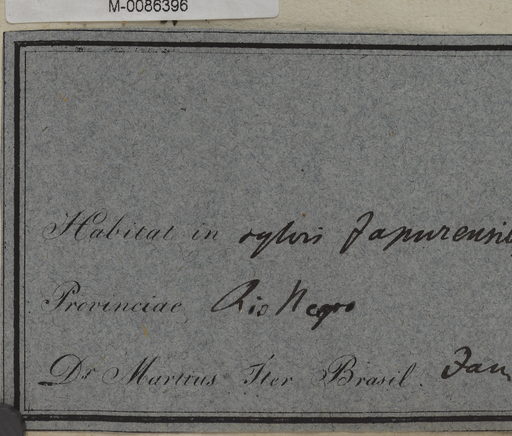 M-0086396
Habitat in sylvis Japurensib
Provinciae Rio Negro
Dr Martius Iter Brasil. Jan